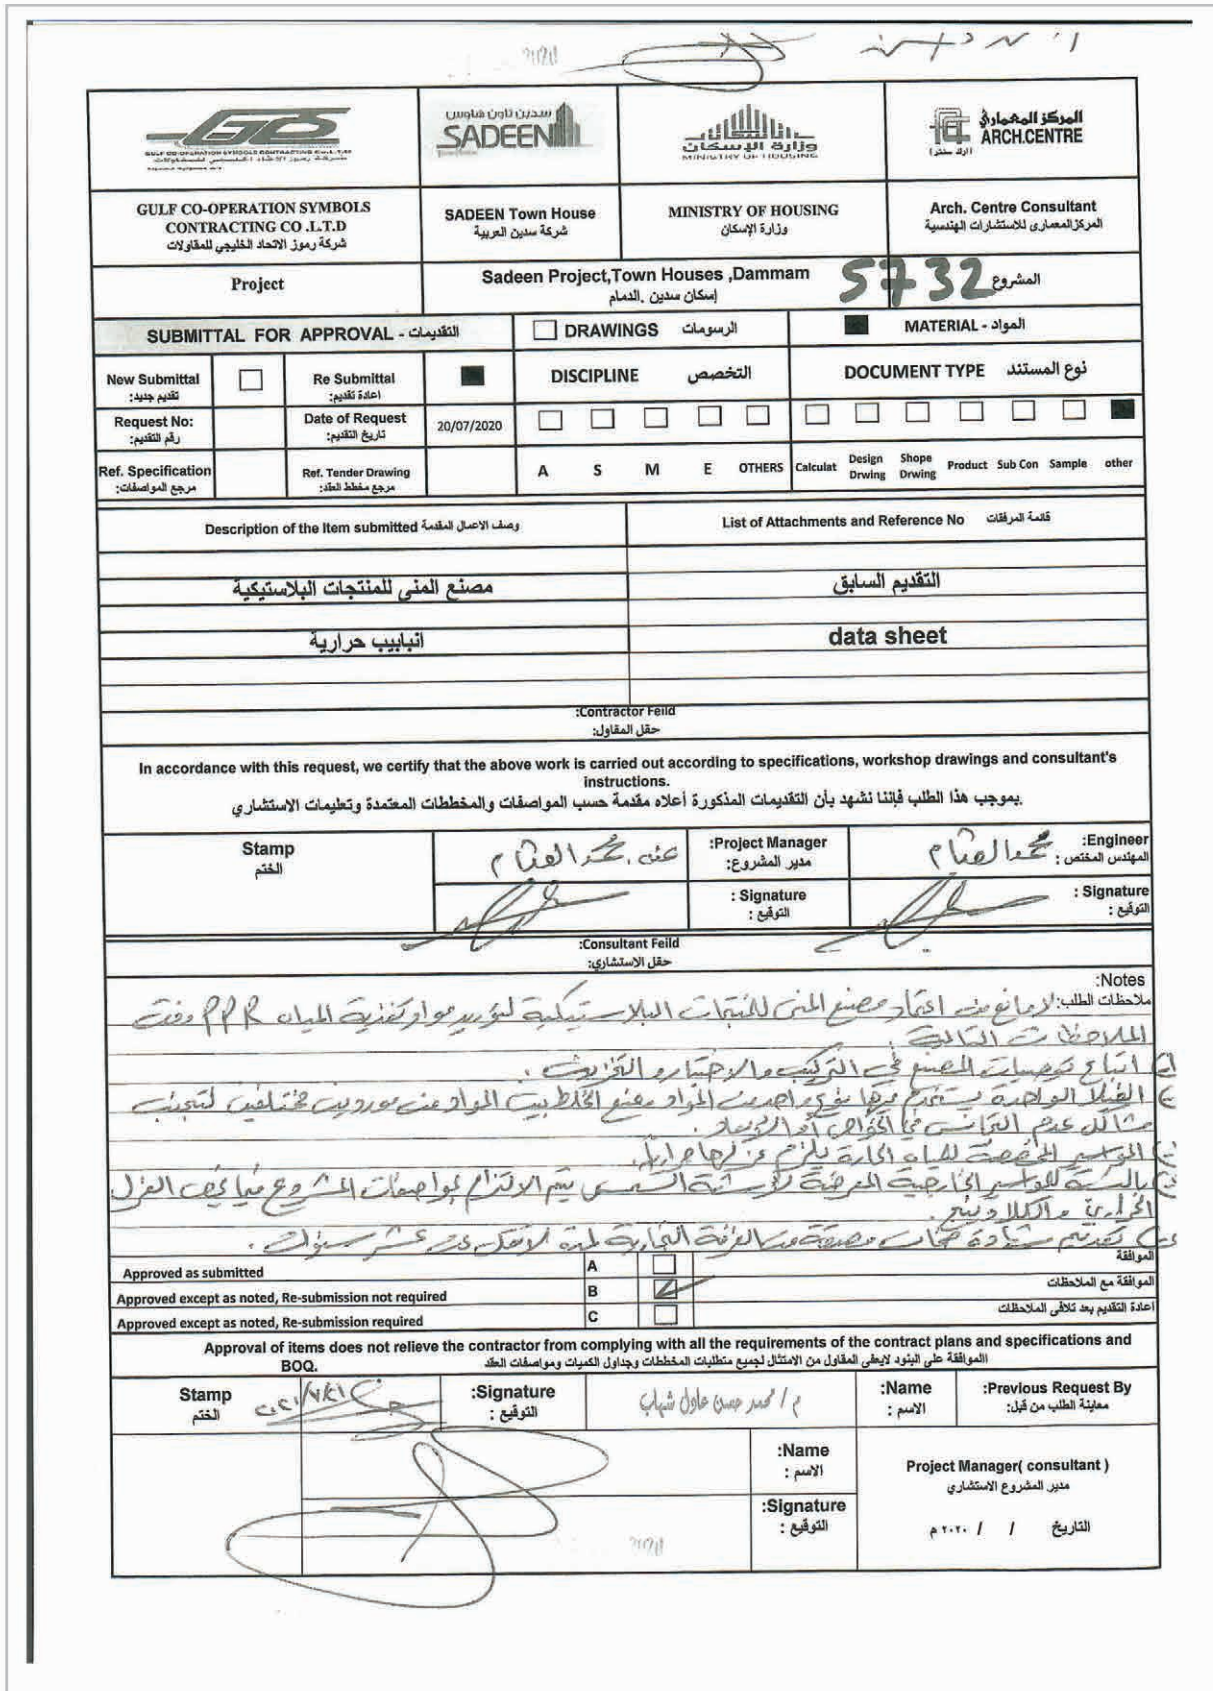 سدين تاون هاوس
SADEEN
وزارة الإسكان
MINISTRY OF HOUSING
المركز المعماري
ARCH.CENTRE
(ارك سنتر)
GULF CO-OPERATION SYMBOLS CONTRACTING Co.L.T.D
GULF CO-OPERATION SYMBOLS
CONTRACTING CO .L.T.D
شركة رموز الاتحاد الخليجي للمقاولات
SADEEN Town House
شركة سدين العربية
MINISTRY OF HOUSING
وزارة الإسكان
Arch. Centre Consultant
المركز المعماري للاستشارات الهندسية
Project
Sadeen Project,Town Houses ,Dammam
إسكان سدين .الدمام
5732
المشروع
SUBMITTAL FOR APPROVAL - التقديمات
DRAWINGS الرسومات
MATERIAL - المواد
New Submittal
تقديم جديد:
Re Submittal
اعادة تقديم:
DISCIPLINE التخصص
DOCUMENT TYPE نوع المستند
Request No:
رقم التقديم:
Date of Request
تاريخ التقديم:
20/07/2020
Ref. Specification
مرجع المواصفات:
Ref. Tender Drawing
مرجع مخطط العقد:
A S M E OTHERS
Calculat Design Drwing Shope Drwing Product Sub Con Sample other
Description of the Item submitted وصف الاعمال المقدمة
List of Attachments and Reference No قائمة المرفقات
مصنع المنى للمنتجات البلاستيكية
التقديم السابق
انبابيب حرارية
data sheet
:Contractor Feild
حقل المقاول:
In accordance with this request, we certify that the above work is carried out according to specifications, workshop drawings and consultant's
instructions.
بموجب هذا الطلب فإننا نشهد بأن التقديمات المذكورة أعلاه مقدمة حسب المواصفات والمخططات المعتمدة وتعليمات الاستشاري.
Stamp
الختم
عنه محمد
:Project Manager
مدير المشروع:
محمد
:Engineer
المهندس المختص :
: Signature
التوقيع :
: Signature
التوقيع :
:Consultant Feild
حقل الاستشاري:
:Notes
ملاحظات الطلب: لا مانع من اعتماد مصنع المنى للمنتجات البلاستيكية لتوريد مواد تغذية المياه PPR وفق
الملاحظات التالية:
اتباع توصيات المصنع في التركيب والاختبار والتخزين.
الفيلا الواحدة يستخدم فيها نوع واحد من المواد ويمنع الخلط بين المواد من موردين مختلفين لتجنب
مشاكل عدم التجانس في الخواص أو الأبعاد.
المواسير المخصصة للمياه الحارة يلزم عزلها حرارياً.
بالنسبة للمواسير الخارجية المعرضة لأشعة الشمس يتم الالتزام بمواصفات المشروع فيما يخص العزل
الحراري والكلادينج.
تقديم شهادة ضمان مصدقة من الغرفة التجارية لمدة لا تقل عن عشر سنوات.
Approved as submitted A الموافقة
Approved except as noted, Re-submission not required B الموافقة مع الملاحظات
Approved except as noted, Re-submission required C اعادة التقديم بعد تلافى الملاحظات
Approval of items does not relieve the contractor from complying with all the requirements of the contract plans and specifications and
BOQ. االموافقة على البنود لايعفى المقاول من الامتثال لجميع متطلبات المخططات وجداول الكميات ومواصفات العقد
Stamp
الختم
:Signature
التوقيع :
م / محمد حسن عادل شهاب
:Name
الاسم :
:Previous Request By
معاينة الطلب من قبل:
:Name
الاسم :
Project Manager( consultant )
مدير المشروع الاستشاري
:Signature
التوقيع :
التاريخ / / ٢٠٢٠ م